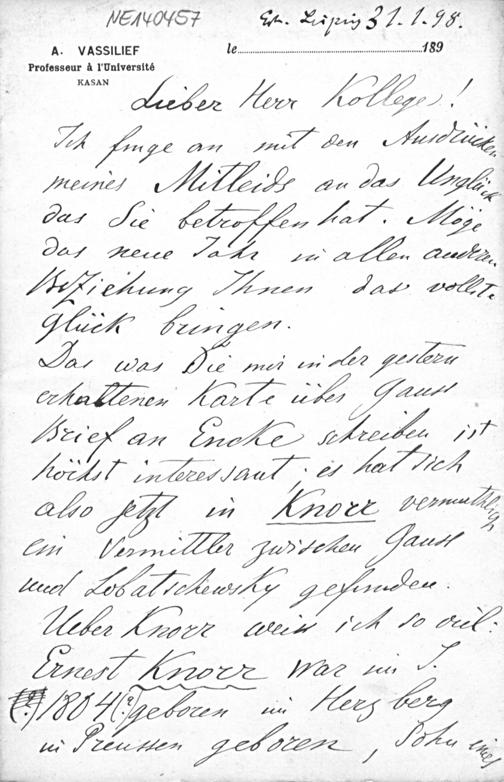 NE140457
Erh. Leipzig 31.1.98.
A. VASSILIEF
le 189
Professeur à l'Université
KASAN
Lieber Herr Kollege!
Ich fange an mit den Ausdrücken
meines Mitleids an das Unglück
das Sie betroffen hat. Möge
das neue Jahr in allen anderen
Beziehung Ihnen das vollste
Glück bringen.
Das was Sie mir in der gestern
erhaltenen Karte über Gauss
Brief an Encke schreiben ist
höchst interessant; es hat sich
also jetzt in Knorr vermuthlich
ein Vermittler zwischen Gauss
und Lobatschewsky gefunden.
Ueber Knorr weiss ich so viel:
Ernest Knorr war im J.
(?) 1804 (?) geboren im Herzberg
in Preussen geboren, Sohn eines